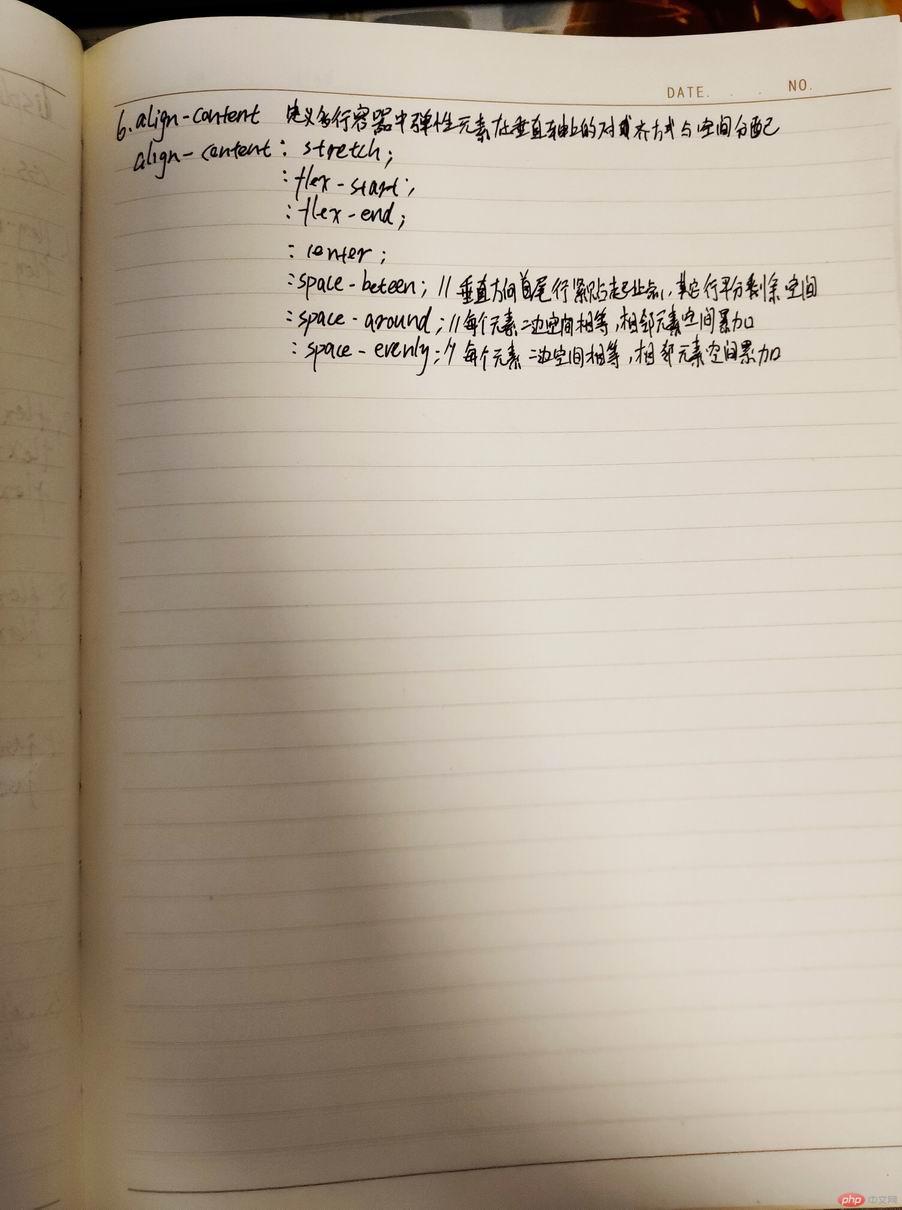 DATE. . . NO.
6. align-content 定义多行容器中弹性元素在垂直轴上的对齐方式与空间分配
align-content: stretch;
: flex-start;
: flex-end;
: center;
: space-beteen; // 垂直方向首尾行紧贴起止点, 其它行平分剩余空间
: space-around; // 每个元素二边空间相等, 相邻元素空间累加
: space-evenly; // 每个元素二边空间相等, 相邻元素空间累加
php 中文网